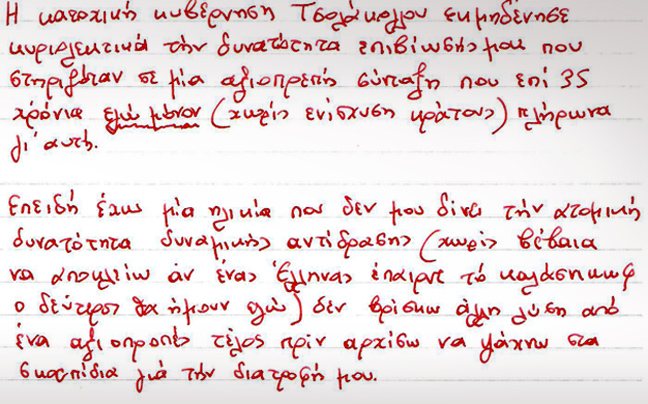 Η κατοχική κυβέρνηση Τσολάκογλου εκμηδένησε
κυριολεκτικά την δυνατότητα επιβίωσής μου που
στηριζόταν σε μία αξιοπρεπή σύνταξη που επί 35
χρόνια εγώ μόνον (χωρίς ενίσχυση κράτους) πλήρωνα
γι' αυτή.
Επειδή έχω μία ηλικία που δεν μου δίνει την ατομική
δυνατότητα δυναμικής αντίδρασης (χωρίς βέβαια
να αποκλείω αν ένας Έλληνας έπαιρνε το καλάσνικωφ
ο δεύτερος θα ήμουν εγώ) δεν βρίσκω άλλη λύση από
ένα αξιοπρεπές τέλος πριν αρχίσω να ψάχνω στα
σκουπίδια για την διατροφή μου.